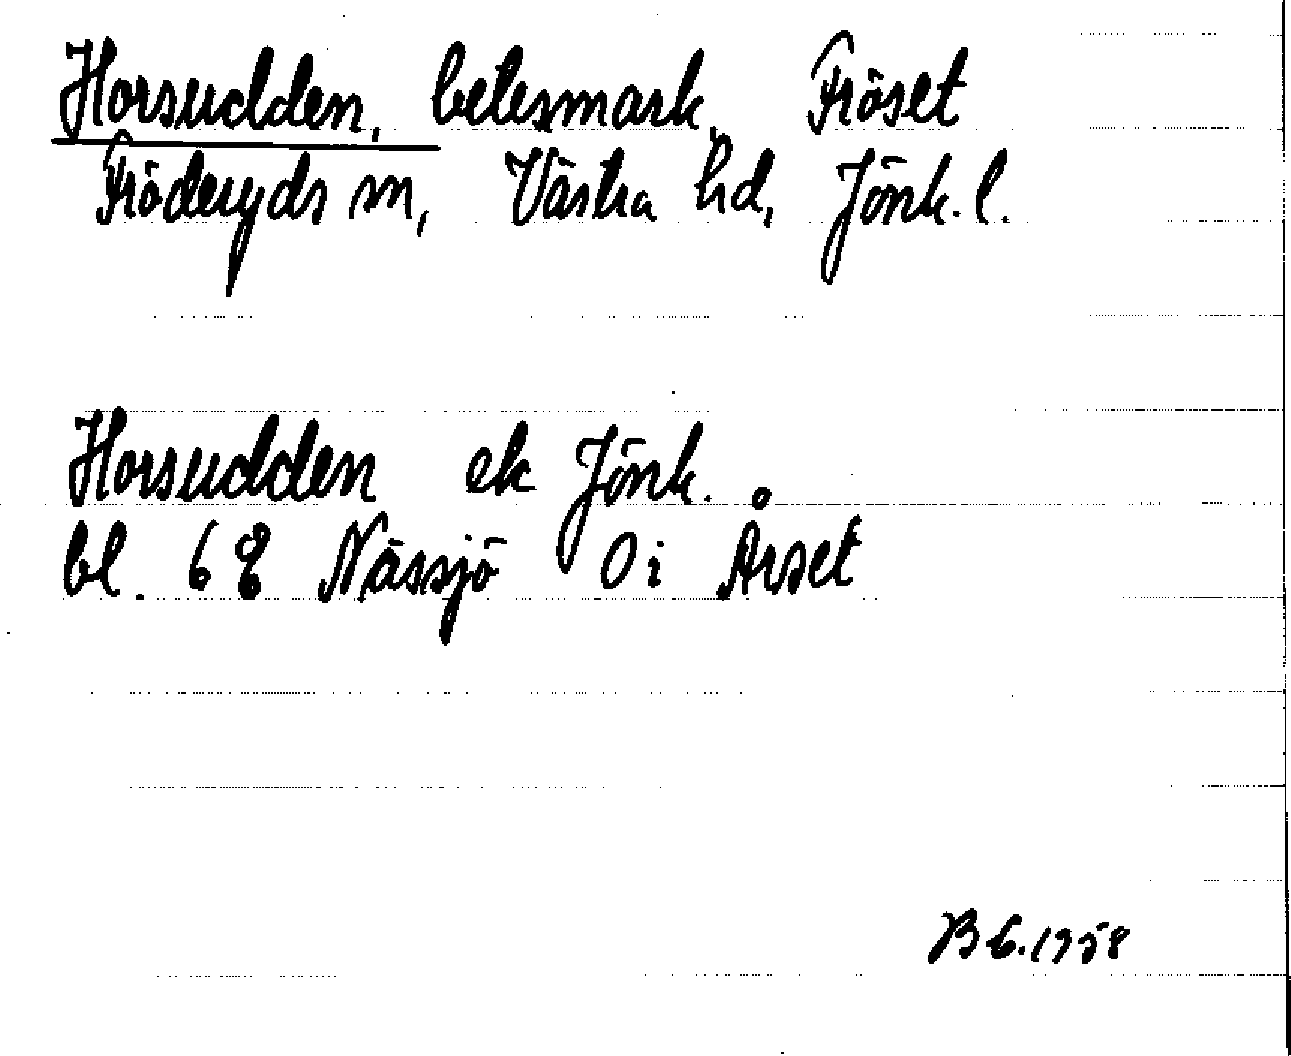 Horsudden, betesmark, Fröset
Fröderyds sn, Västra hd, Jönk. l.
Horsudden ek Jönk.
bl. 6 E Nässjö O i Årset
BG.1958